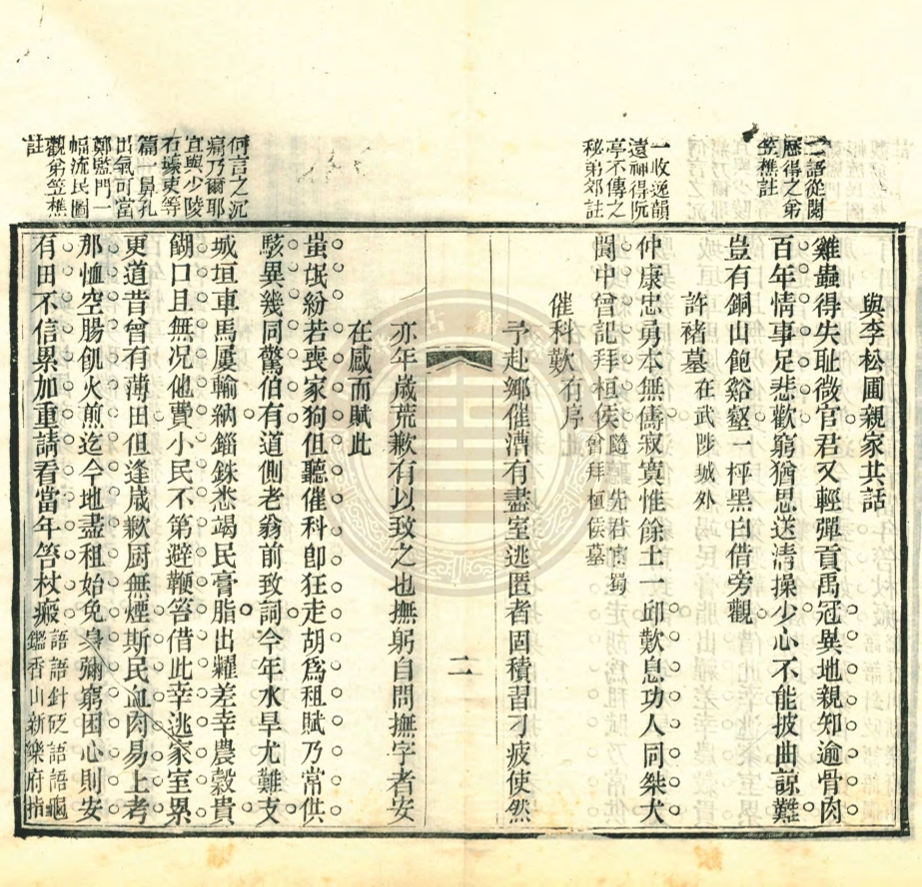 二語從閱
歷得之弟
笠樵註
一收逸韻
遠神得阮
亭不傳之
秘弟郊註
與李松圃親家共話
雞蟲得失耻微官君又輕彈貢禹冠異地親知逾骨肉
百年情事足悲歡窮猶思送清操少心不能披曲諒難
豈有銅山飽谿壑一枰黑白借旁觀
許褚墓在武陟城外
仲康忠勇本無儔寂寞惟餘土一邱歎息功人同桀犬
閬中曾記拜桓侯隨先君官蜀
曾拜桓侯墓
催科歎有序
予赴鄉催漕有盡室逃匿者固積習刁疲使然
二
亦年歲荒歉有以致之也撫躬自問撫字者安
在感而賦此
蚩氓紛若喪家狗但聽催科卽狂走胡爲租賦乃常供
駭異幾同驚伯有道側老翁前致詞今年水旱尤難支
城垣車馬屢輸納錙銖悉竭民膏脂出糶差幸農穀貴
餬口且無況他費小民不第避鞭笞借此幸逃家室累
更道昔曾有薄田但逢歲歉厨無煙斯民血肉易上考
那恤空腸飢火煎迄今地盡租始免身彌窮困心則安
有田不信累加重請看當年笞杖瘢語語針砭語語龜
鑑香山新樂府指
何言之沉
痛乃爾耶
宜與少陵
石壕吏等
篇一鼻孔
出氣可當
鄭監門一
幅流民圖
觀弟笠樵
註